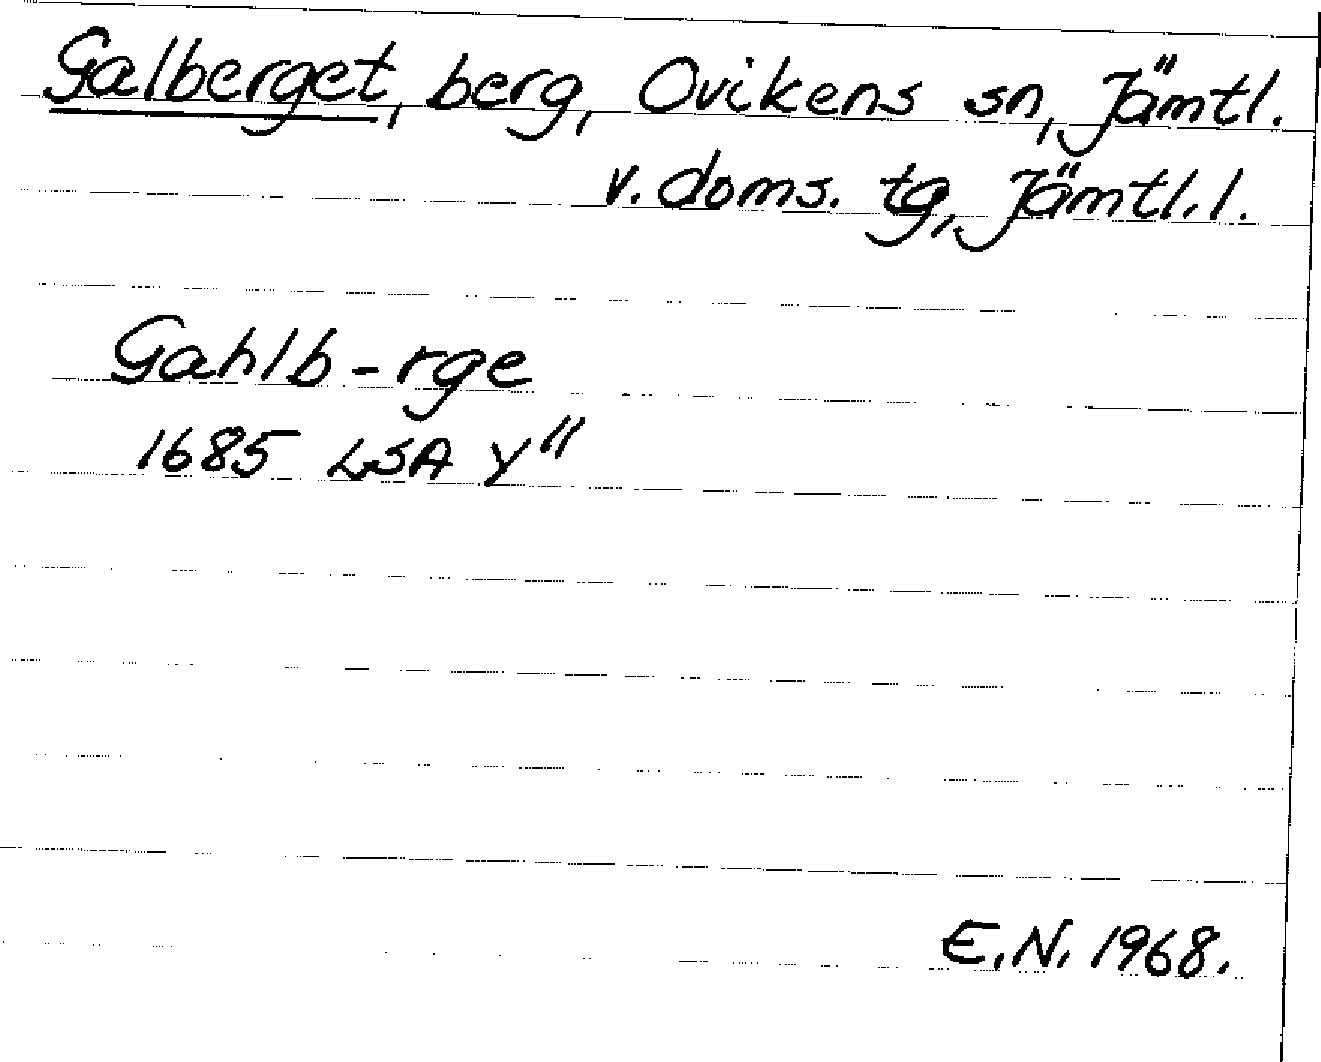 Galberget, berg, Ovikens sn, Jämtl.
v. doms. tg, Jämtl. l.
Gahlb-rge
1685 LSA Y"
E.N. 1968.